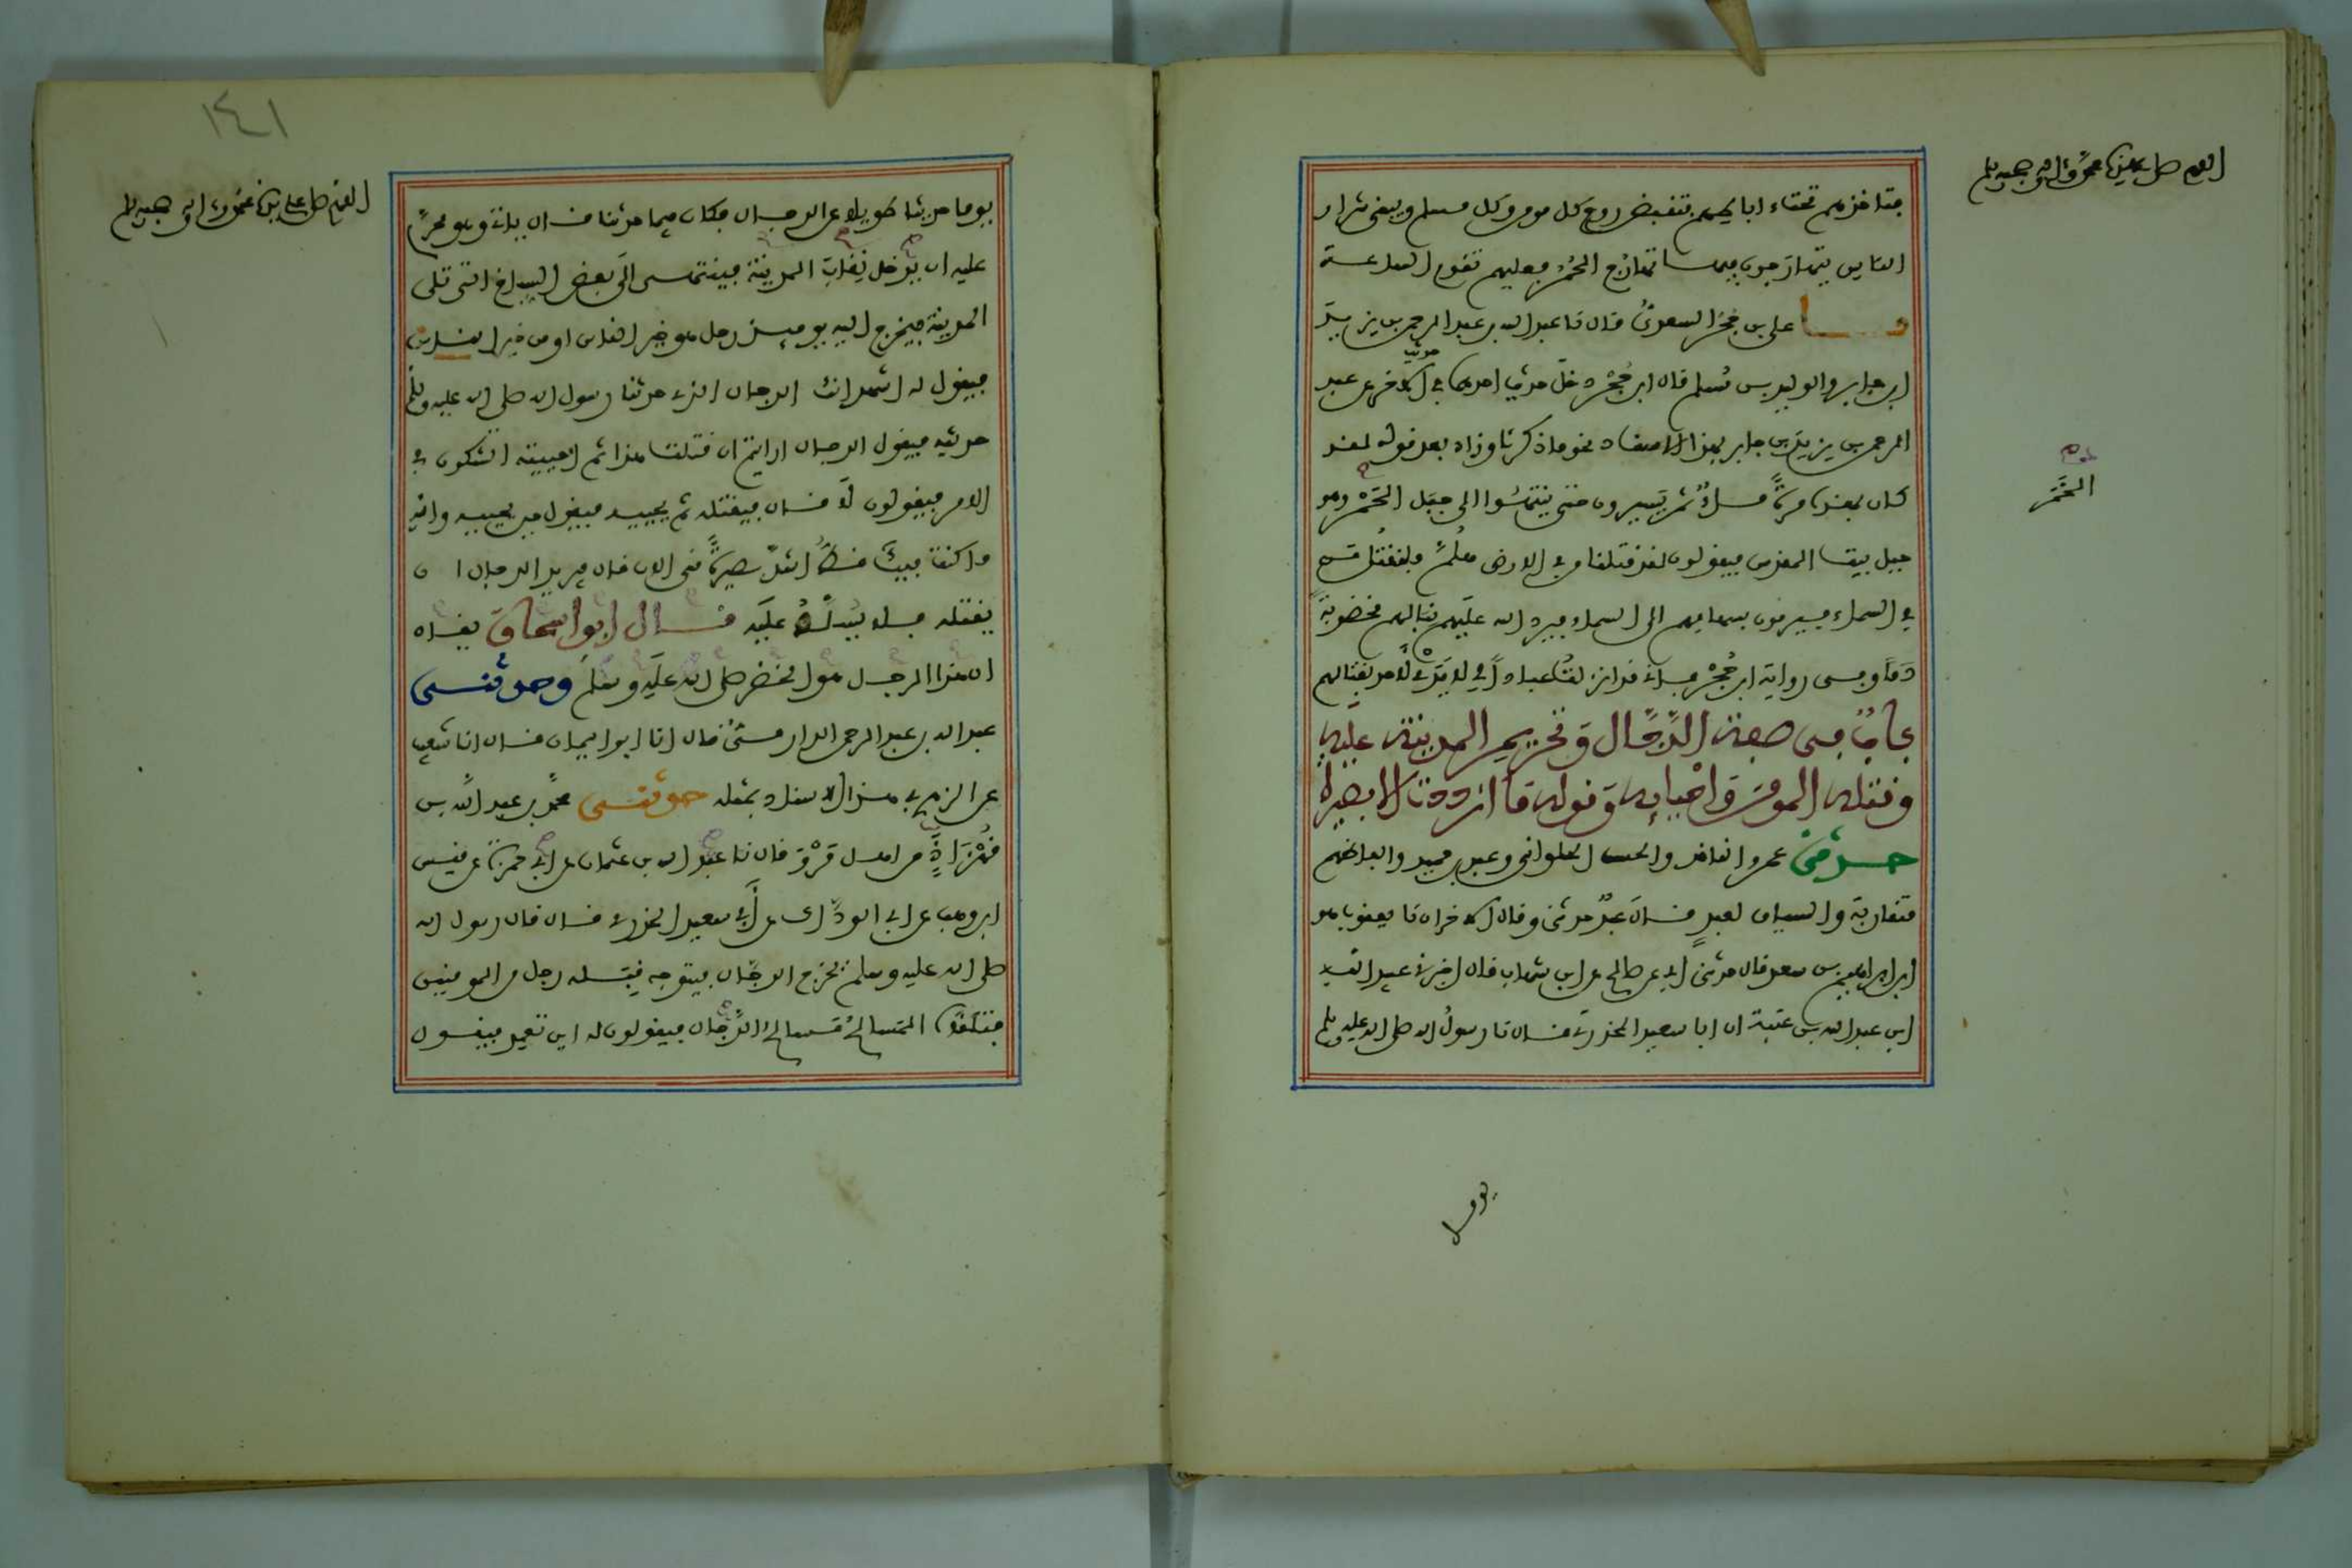 اللهم صل على سيدنا محمد وعلى آله وصحبه وسلم
فتاخذهم تحت اباطهم فتقبض روح كل مومن وكل مسلم ويبقى شرار
الناس يتهارجون فيها تهارج الحمر فعليهم تقوم الساعة
علي بن حجر السعدي قال نا عبد الله بن عبد الرحمن بن يزيد
ابن جابر والوليد بن مسلم قال ابن حجر دخل حديث احدهما في حديث الاخر عن عبد
الرحمن بن يزيد بن جابر بهذا الاسناد نحو ما ذكرنا وزاد بعد قوله لقد
كان بهذه مرة ماء ثم يسيرون حتى ينتهوا الى جبل الخمر وهو
الخمر
جبل بيت المقدس فيقولون لقد قتلنا من في الارض هلم فلنقتل من
في السماء فيرمون بسهامهم الى السماء فيرد الله عليهم نبالهم مخضوبة
دما وفي رواية ابن حجر فاني قد انزلت عبادا لي لا يدي لاحد بقتالهم
باب في صفة الدجال وتحريم المدينة عليه
وقتله المومن واحيائه وقوله ما ازددت الا بصيرة
حدثني عمرو الناقد والحسن الحلواني وعبد بن حميد والفاظهم
متقاربة والسياق لعبد قال عبد حدثني وقال الاخران نا يعقوب هو
ابن ابراهيم بن سعد قال حدثني ابي عن صالح عن ابن شهاب قال اخبرني عبيد الله
ابن عبد الله بن عتبة ان ابا سعيد الخدري قال نا رسول الله صلى الله عليه وسلم
يوما
١٤١
اللهم صل على سيدنا محمد وعلى آله وصحبه وسلم
يوما حديثا طويلا عن الدجال فكان فيما حدثنا قال ياتي وهو محرم
عليه ان يدخل نقاب المدينة فينتهي الى بعض السباخ التي تلي
المدينة فيخرج اليه يوميذ رجل هو خير الناس او من خير الناس
فيقول له اشهد انك الدجال الذي حدثنا رسول الله صلى الله عليه وسلم
حديثه فيقول الدجال ارايتم ان قتلت هذا ثم احييته اتشكون في
الامر فيقولون لا قال فيقتله ثم يحييه فيقول حين يحييه والله
ما كنت فيك قط اشد بصيرة مني الان قال فيريد الدجال ان
يقتله فلا يسلط عليه قال ابو اسحاق يقال
ان هذا الرجل هو الخضر صلى الله عليه وسلم وحدثني
عبد الله بن عبد الرحمن الدارمي قال انا ابو اليمان قال انا شعيب
عن الزهري في هذا الاسناد بمثله حدثني محمد بن عبد الله بن
قهزاذ من اهل مرو قال نا عبد الله بن عثمان عن ابي حمزة عن قيس
ابن وهب عن ابي الوداك عن ابي سعيد الخدري قال قال رسول الله
صلى الله عليه وسلم يخرج الدجال فيتوجه قبله رجل من المومنين
فتلقاه المسالح مسالح الدجال فيقولون له اين تعمد فيقول